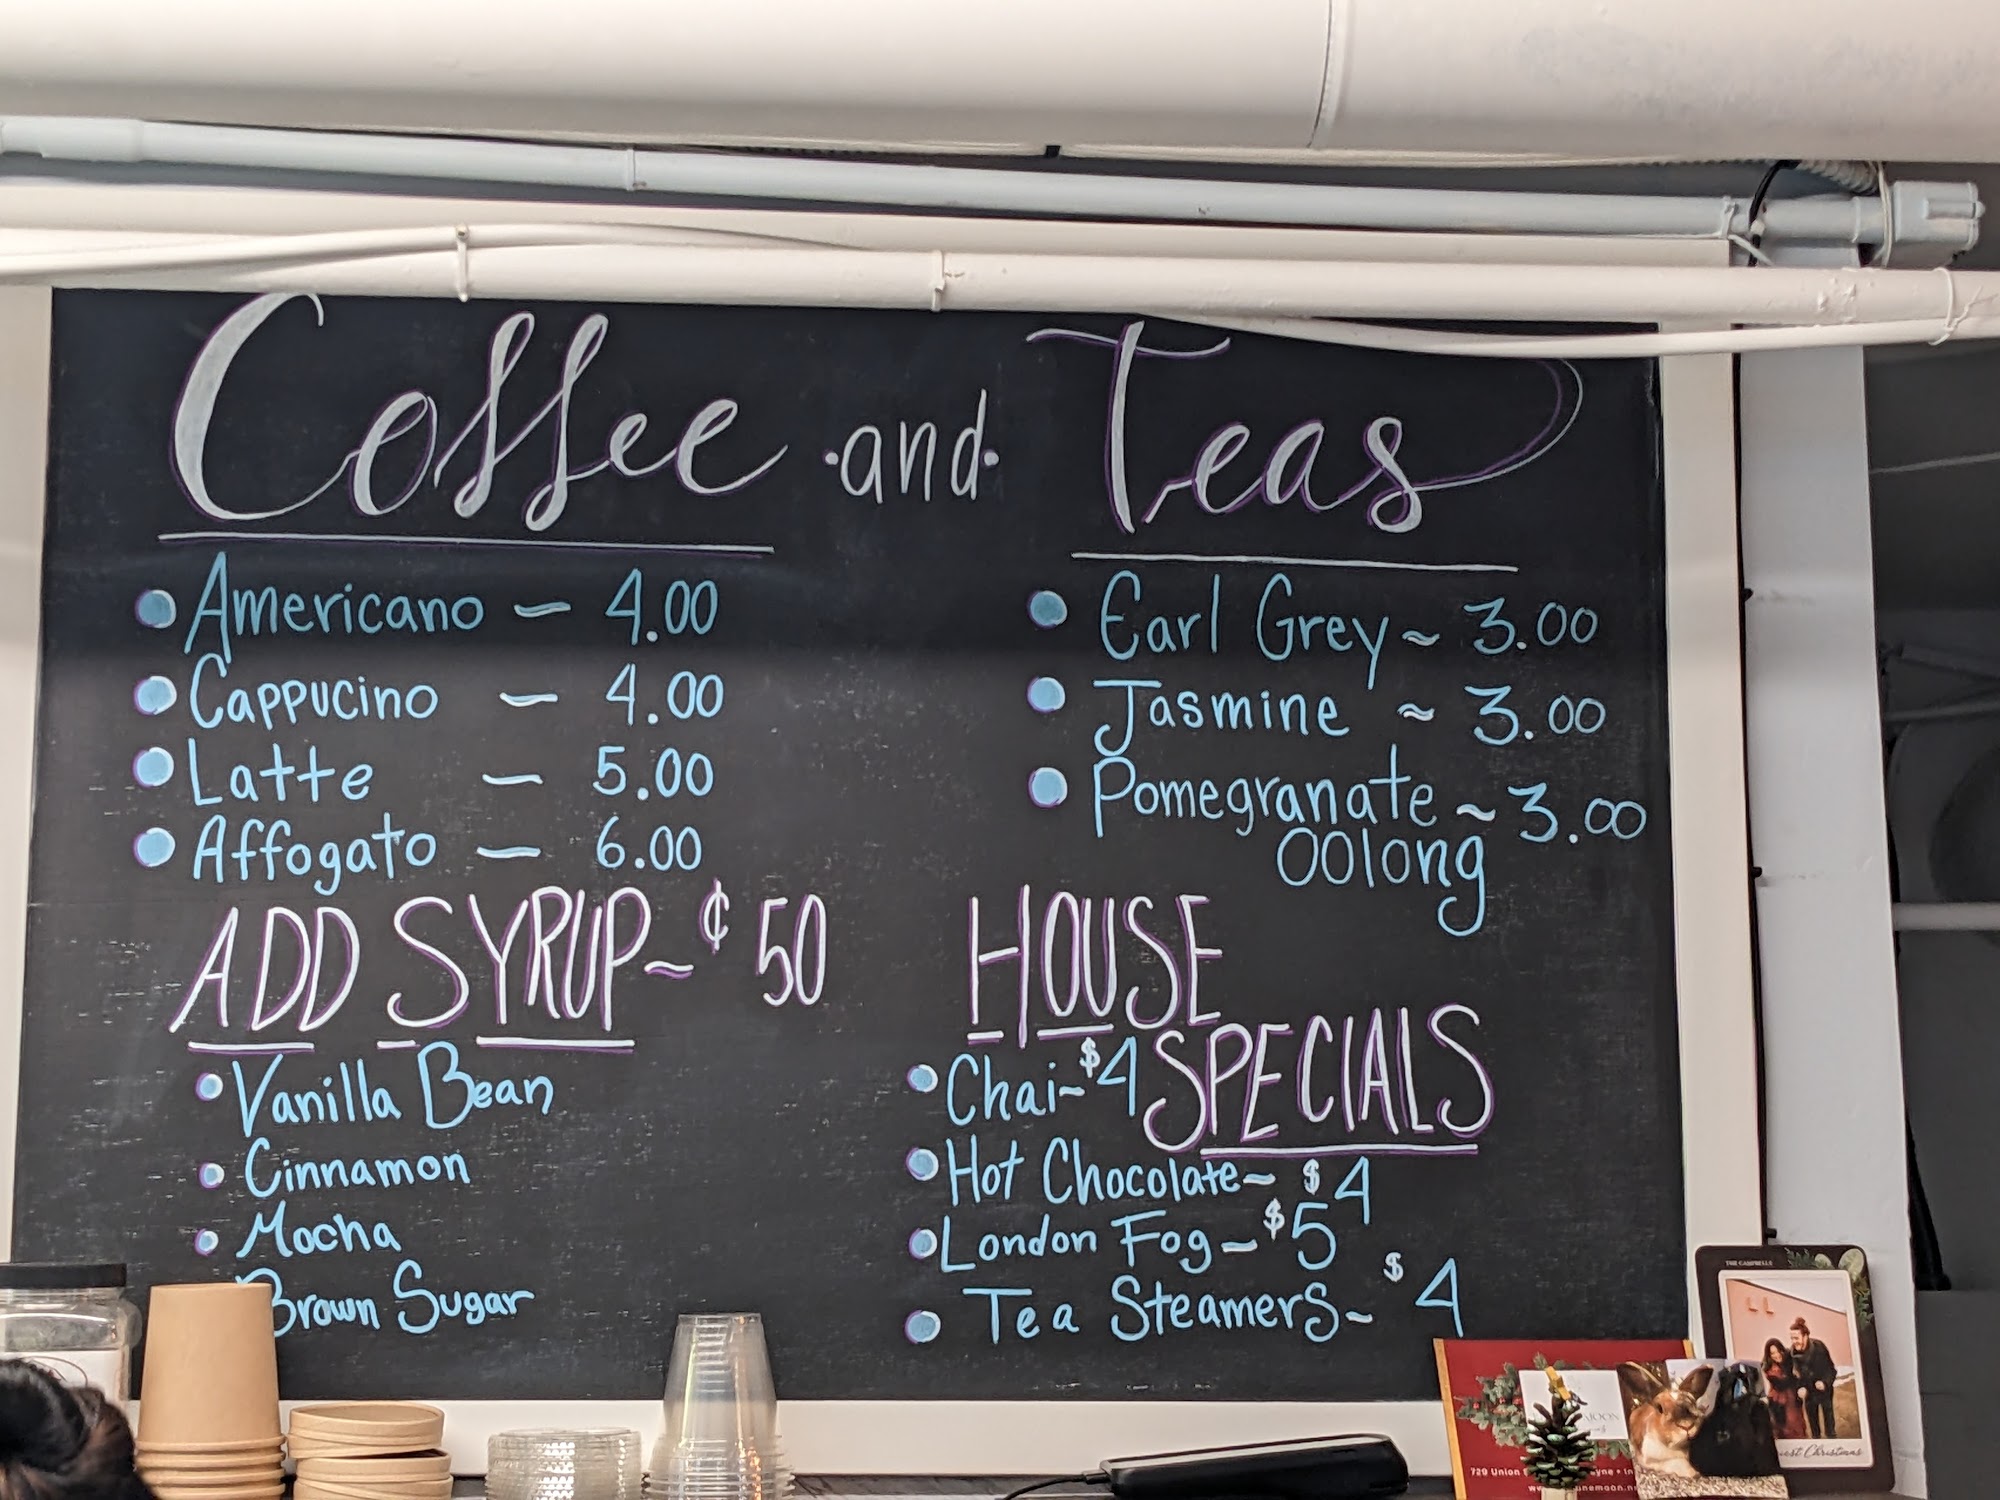 Coffee and Teas
Americano - 4.00
Cappucino - 4.00
Latte - 5.00
Affogato - 6.00
Earl Grey ~ 3.00
Jasmine ~ 3.00
Pomegranate ~ 3.00
Oolong
ADD SYRUP ~ ¢50
Vanilla Bean
Cinnamon
Mocha
Brown Sugar
HOUSE
SPECIALS
Chai ~ $4
Hot Chocolate ~ $4
London Fog ~ $5
Tea Steamers ~ $4
THE CAMPBELLS
Christmas
729 Union